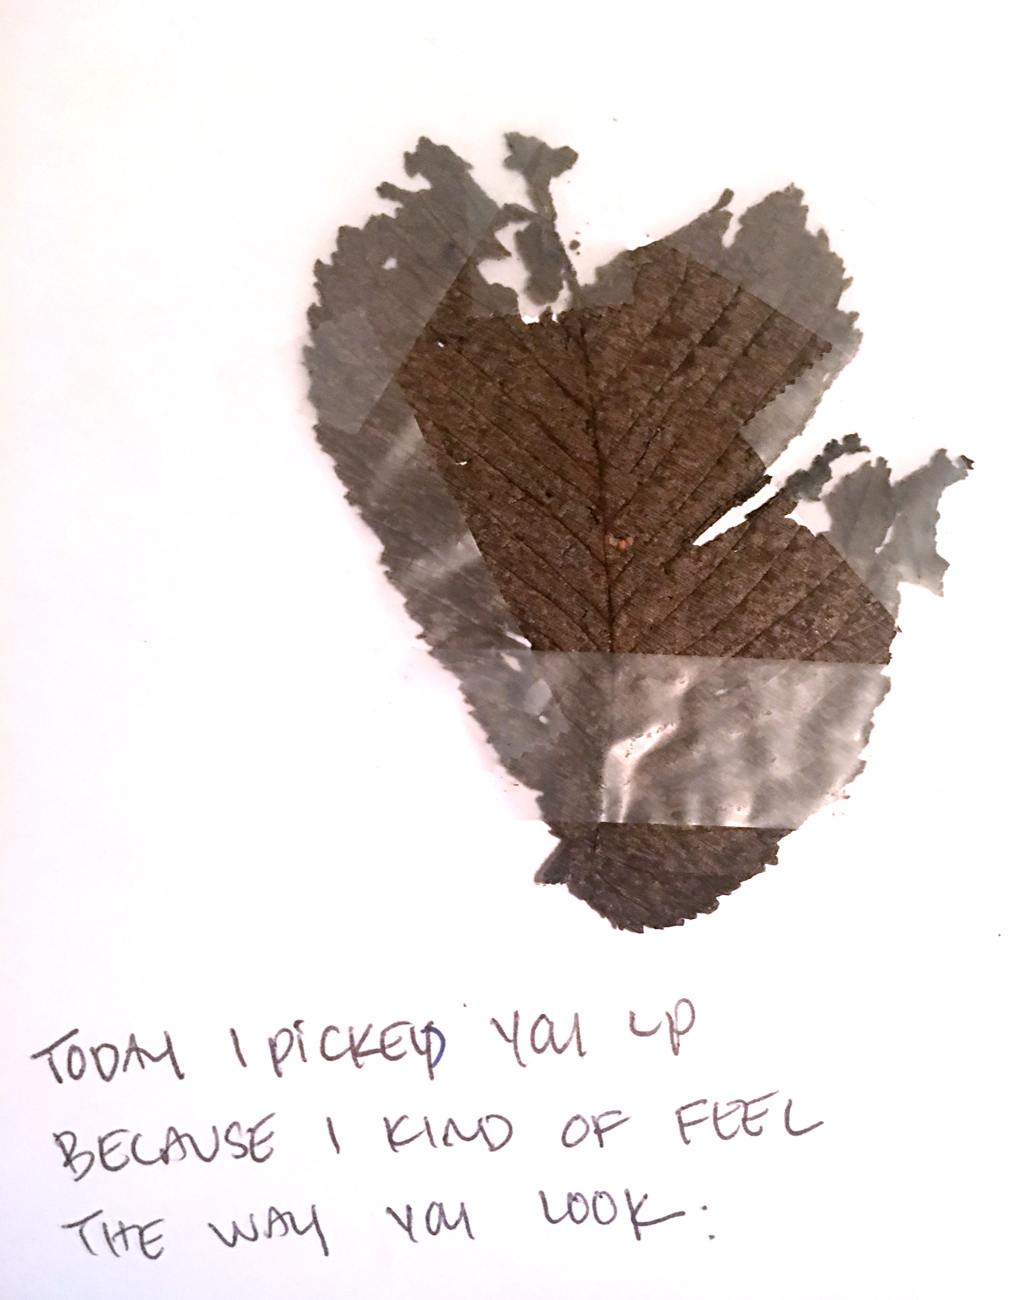 TODAY I PiCKED YOU UP
BECAUSE I KIND OF FEEL
THE WAY YOU LOOK.